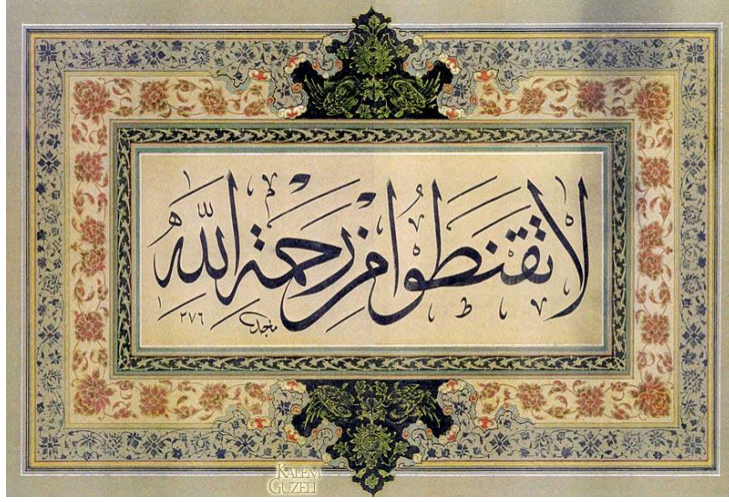 لا تقنطوا من رحمة الله
ماجد
KALEM
GÜZELİ